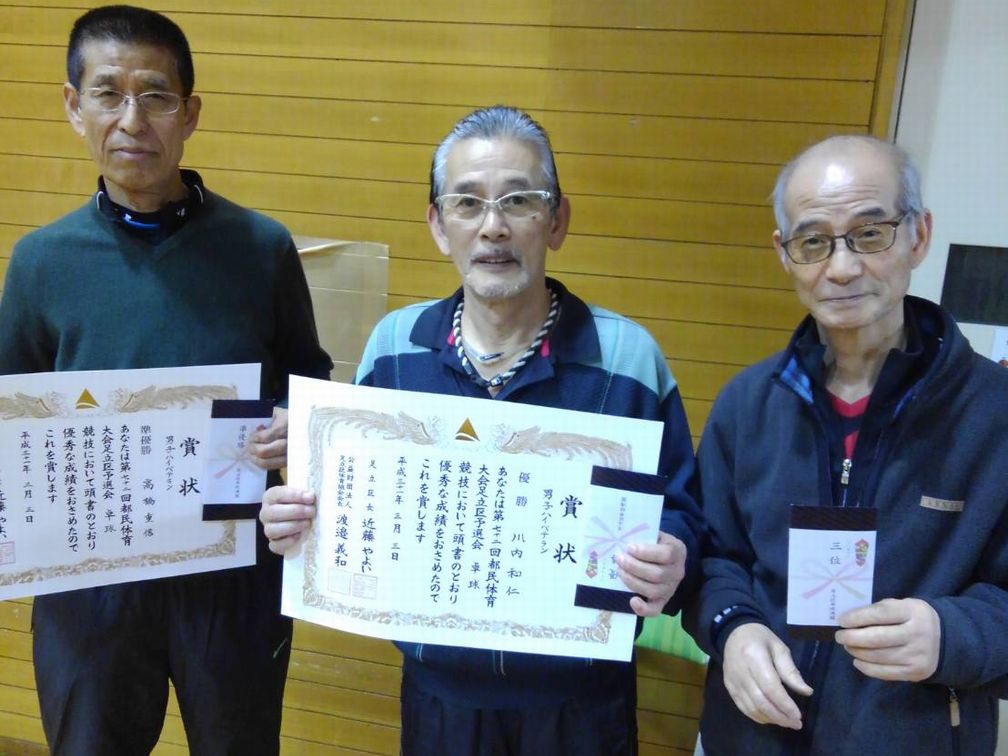 賞状
男子ハイベテラン
準優勝
高鶴重信
あなたは第七十二回都民体育
大会足立区予選会 卓球
競技において頭書のとおり
優秀な成績をおさめたので
これを賞します
平成三十一年三月三日
近藤やよい
準優勝
賞状
男子ハイベテラン
優勝
川内和仁
あなたは第七十二回都民体育
大会足立区予選会 卓球
競技において頭書のとおり
優秀な成績をおさめたので
これを賞します
平成三十一年三月三日
足立区長 近藤やよい
公益財団法人
足立区体育協会会長 渡邉義和
三位